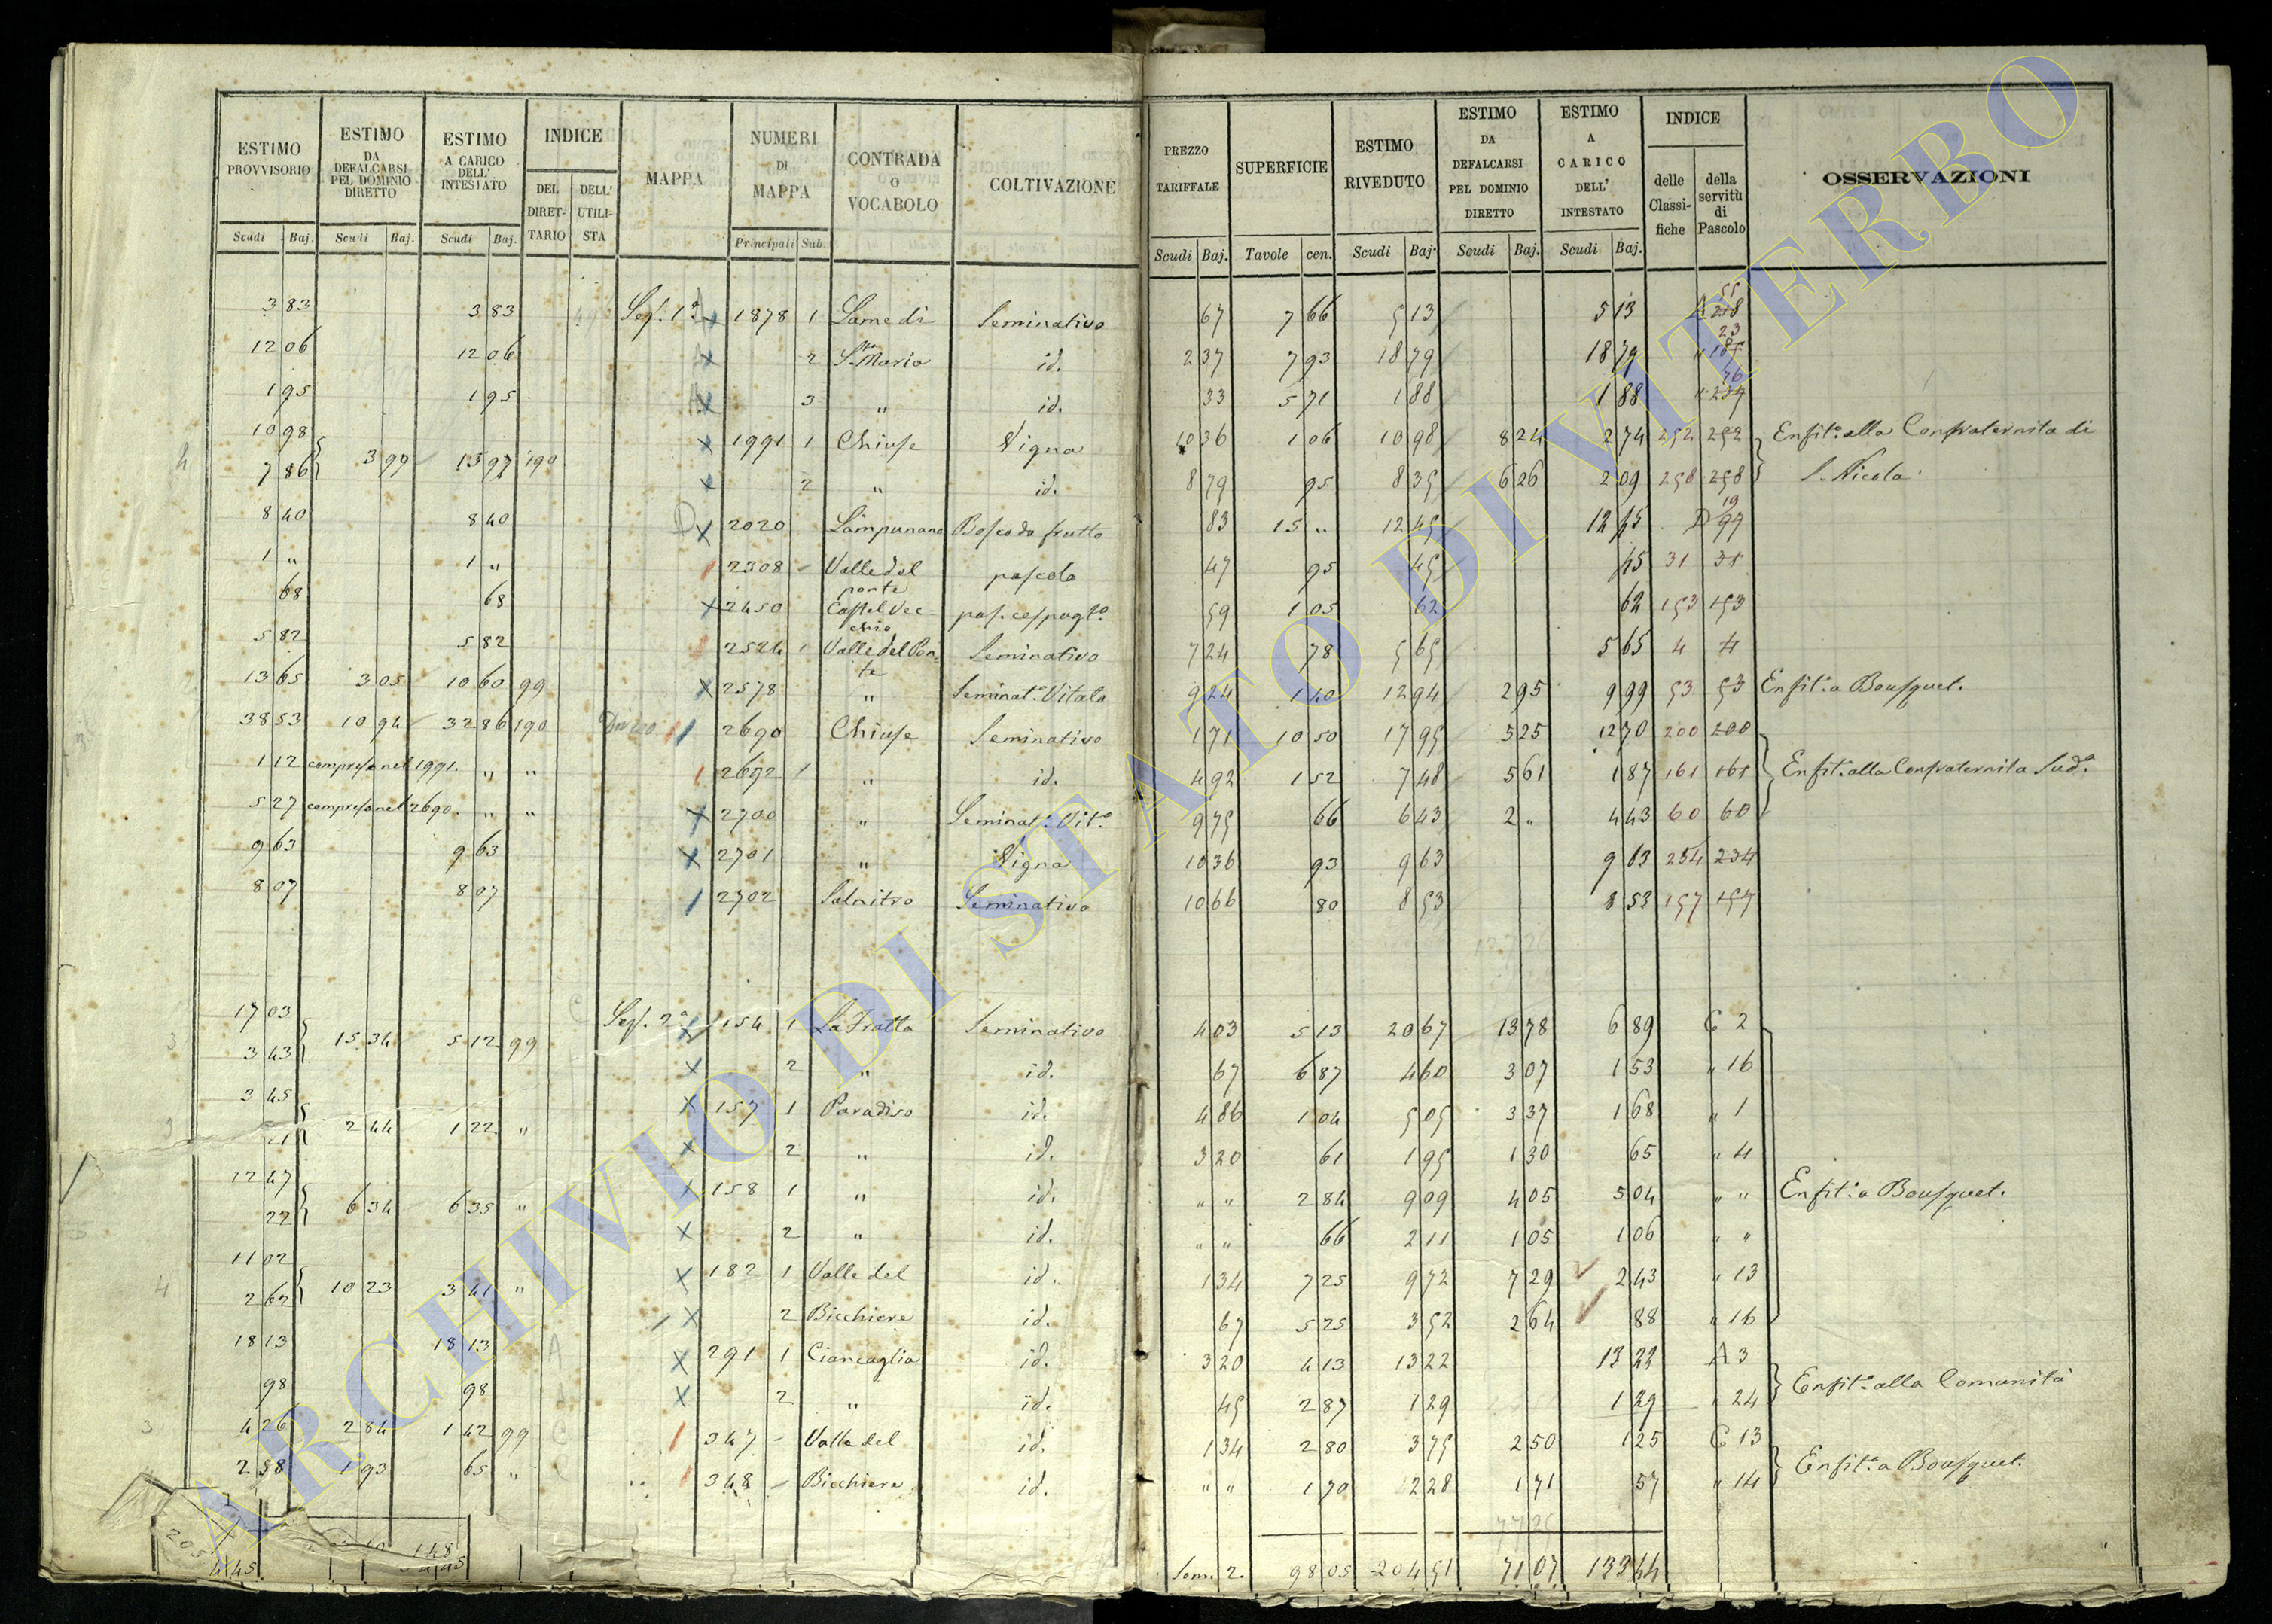 ESTIMO PROVVISORIO | ESTIMO DA DEFALCARSI PEL DOMINIO DIRETTO | ESTIMO A CARICO DELL' INTESTATO | INDICE | MAPPA | NUMERI DI MAPPA | CONTRADA O VOCABOLO | COLTIVAZIONE | PREZZO TARIFFALE | SUPERFICIE | ESTIMO RIVEDUTO | ESTIMO DA DEFALCARSI PEL DOMINIO DIRETTO | ESTIMO A CARICO DELL' INTESTATO | INDICE | OSSERVAZIONI
DEL DIRETTARIO | DELL' UTILISTA | delle Classifiche | della servitù di Pascolo
Scudi Baj. | Scudi Baj. | Scudi Baj. | Principali Sub. | Scudi Baj. | Tavole cen. | Scudi Baj. | Scudi Baj. | Scudi Baj.
3 83 | 3 83 | Sez. 1ª | 1878 1 | Lame di | Seminativo | 67 | 7 66 | 5 13 | 5 13
12 06 | 12 06 | 2 | S. Maria | id. | 2 37 | 7 93 | 18 79 | 18 79
1 95 | 1 95 | 3 | " | id. | 33 | 5 71 | 1 88 | 1 88
10 98 | 1991 1 | Chiuse | Vigna | 10 36 | 1 06 | 10 98 | 8 24 | 2 74 | 252 | 252 | Enfit. alla Confraternita di
7 86 | 3 99 | 15 97 | 190 | 2 | " | id. | 8 79 | 95 | 8 35 | 6 26 | 2 09 | 258 | 258 | S. Nicola
8 40 | 8 40 | 2020 | Lampunano | Bosco da frutto | 83 | 15 " | 12 45 | 12 45 | D 99
1 " | 1 " | 2308 | Valle del ponte | pascolo | 47 | 95 | 45 | 45 | 31 | 31
68 | 68 | 2450 | Castel Vecchio | pas. cespugto | 59 | 1 05 | 62 | 62 | 153 | 153
5 82 | 5 82 | 2524 | Valle del Ponte | Seminativo | 7 24 | 78 | 5 65 | 5 65 | 4 | 4
13 65 | 3 05 | 10 60 | 99 | 2578 | " | Seminat. Vitato | 9 24 | 1 40 | 12 94 | 2 95 | 9 99 | 53 | 53 | Enfit. a Bousquet.
38 53 | 10 94 | 32 86 | 190 | 2690 | Chiuse | Seminativo | 1 71 | 10 50 | 17 95 | 5 25 | 12 70 | 200 | 200
1 12 | compreso nel 1991. | " | " | 2692 | " | id. | 4 92 | 1 52 | 7 48 | 5 61 | 1 87 | 161 | 161 | Enfit. alla Confraternita Sud.
5 27 | compreso nel 2690. | " | " | 2700 | " | Seminat. Vit. | 9 75 | 66 | 6 43 | 2 " | 4 43 | 60 | 60
9 63 | 9 63 | 2701 | " | Vigna | 10 36 | 93 | 9 63 | 9 63 | 254 | 234
8 07 | 8 07 | 2702 | Salnitro | Seminativo | 10 66 | 80 | 8 53 | 8 53 | 157 | 157
17 03 | Sez. 2ª | 154 1 | La Fratta | Seminativo | 4 03 | 5 13 | 20 67 | 13 78 | 6 89 | C 2
3 43 | 15 34 | 5 12 | 99 | 2 | " | id. | 67 | 6 87 | 4 60 | 3 07 | 1 53 | " 16
3 45 | 157 1 | Paradiso | id. | 4 86 | 1 04 | 5 05 | 3 37 | 1 68 | " 1
2 44 | 1 22 | " | 2 | " | id. | 3 20 | 61 | 1 95 | 1 30 | 65 | " 4
12 47 | 158 1 | " | id. | " " | 2 84 | 9 09 | 4 05 | 5 04 | " " | Enfit. a Bousquet.
22 | 6 34 | 6 35 | " | 2 | " | id. | " " | 66 | 2 11 | 1 05 | 1 06 | " "
11 02 | 182 1 | Valle del | id. | 1 34 | 7 25 | 9 72 | 7 29 | 2 43 | " 13
2 62 | 10 23 | 3 41 | " | 2 | Bicchiere | id. | 67 | 5 25 | 3 52 | 2 64 | 88 | " 16
18 13 | 18 13 | A | 291 1 | Ciancaglia | id. | 3 20 | 4 13 | 13 22 | 13 22 | A 3
98 | 98 | 2 | " | id. | 45 | 2 87 | 1 29 | 1 29 | " 24 | Enfit. alla Comunità
4 26 | 2 84 | 1 42 | 99 | C | 347 | Valle del | id. | 1 34 | 2 80 | 3 75 | 2 50 | 1 25 | C 13
2 58 | 1 93 | 65 | " | C | 348 | Bicchiere | id. | " " | 1 70 | 2 28 | 1 71 | 57 | " 14 | Enfit. a Bousquet.
Som. 2. | 98 05 | 204 51 | 71 07 | 133 44
ARCHIVIO DI STATO DI VITERBO